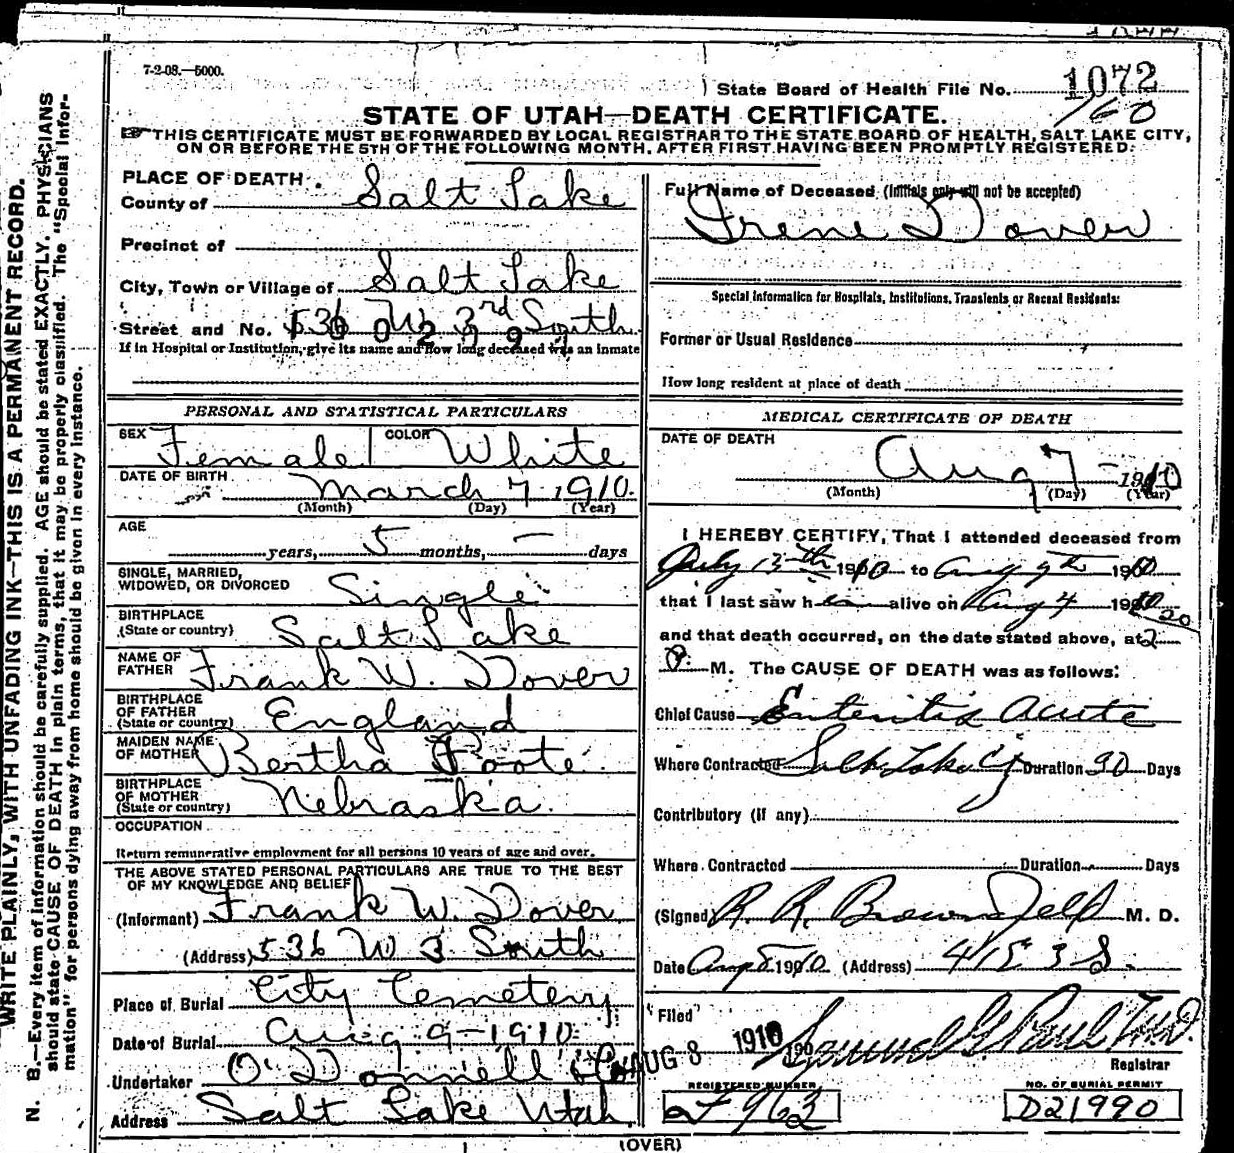 7-2-08.—5000.
State Board of Health File No. 1072
160
STATE OF UTAH—DEATH CERTIFICATE.
THIS CERTIFICATE MUST BE FORWARDED BY LOCAL REGISTRAR TO THE STATE BOARD OF HEALTH, SALT LAKE CITY,
ON OR BEFORE THE 5TH OF THE FOLLOWING MONTH, AFTER FIRST HAVING BEEN PROMPTLY REGISTERED.
WRITE PLAINLY, WITH UNFADING INK—THIS IS A PERMANENT RECORD.
N. B.—Every item of information should be carefully supplied. AGE should be stated EXACTLY. PHYSICIANS
should state CAUSE OF DEATH in plain terms, that it may be properly classified. The "Special Infor-
mation" for persons dying away from home should be given in every instance.
PLACE OF DEATH
County of Salt Lake
Precinct of
City, Town or Village of Salt Lake
Street and No. 536 W 3rd South
If in Hospital or Institution, give its name and how long deceased was an inmate
PERSONAL AND STATISTICAL PARTICULARS
SEX Female COLOR White
DATE OF BIRTH March 7 1910.
(Month) (Day) (Year)
AGE years, 5 months, — days
SINGLE, MARRIED,
WIDOWED, OR DIVORCED Single
BIRTHPLACE
(State or country) Salt Lake
NAME OF
FATHER Frank W. Dover
BIRTHPLACE
OF FATHER
(State or country) England
MAIDEN NAME
OF MOTHER Bertha Poote
BIRTHPLACE
OF MOTHER
(State or country) Nebraska.
OCCUPATION
Return remunerative employment for all persons 10 years of age and over.
THE ABOVE STATED PERSONAL PARTICULARS ARE TRUE TO THE BEST
OF MY KNOWLEDGE AND BELIEF
(Informant) Frank W. Dover
(Address) 536 W 3 South
Place of Burial City Cemetery
Date of Burial Aug 9-1910
Undertaker O'Donnell & Co
Address Salt Lake Utah.
Full Name of Deceased (Initials only will not be accepted)
Irene Dover
Special Information for Hospitals, Institutions, Transients or Recent Residents:
Former or Usual Residence
How long resident at place of death
MEDICAL CERTIFICATE OF DEATH
DATE OF DEATH
Aug 7 - 1910
(Month) (Day) (Year)
I HEREBY CERTIFY, That I attended deceased from
July 13th 1910 to Aug 7th 1910
that I last saw her alive on Aug 4 1910
and that death occurred, on the date stated above, at 2 20
P. M. The CAUSE OF DEATH was as follows:
Chief Cause Enteritis Acute
Where Contracted Salt Lake Cy Duration 30 Days
Contributory (if any)
Where Contracted Duration Days
(Signed) R. R. Brownfield M. D.
Date Aug 8 1910 (Address) 415 3 S.
"Filed" AUG 8 1910 190 Samuel G. Paul M.D.
Registrar
REGISTERED NUMBER
F 963
NO. OF BURIAL PERMIT
D21990
(OVER)